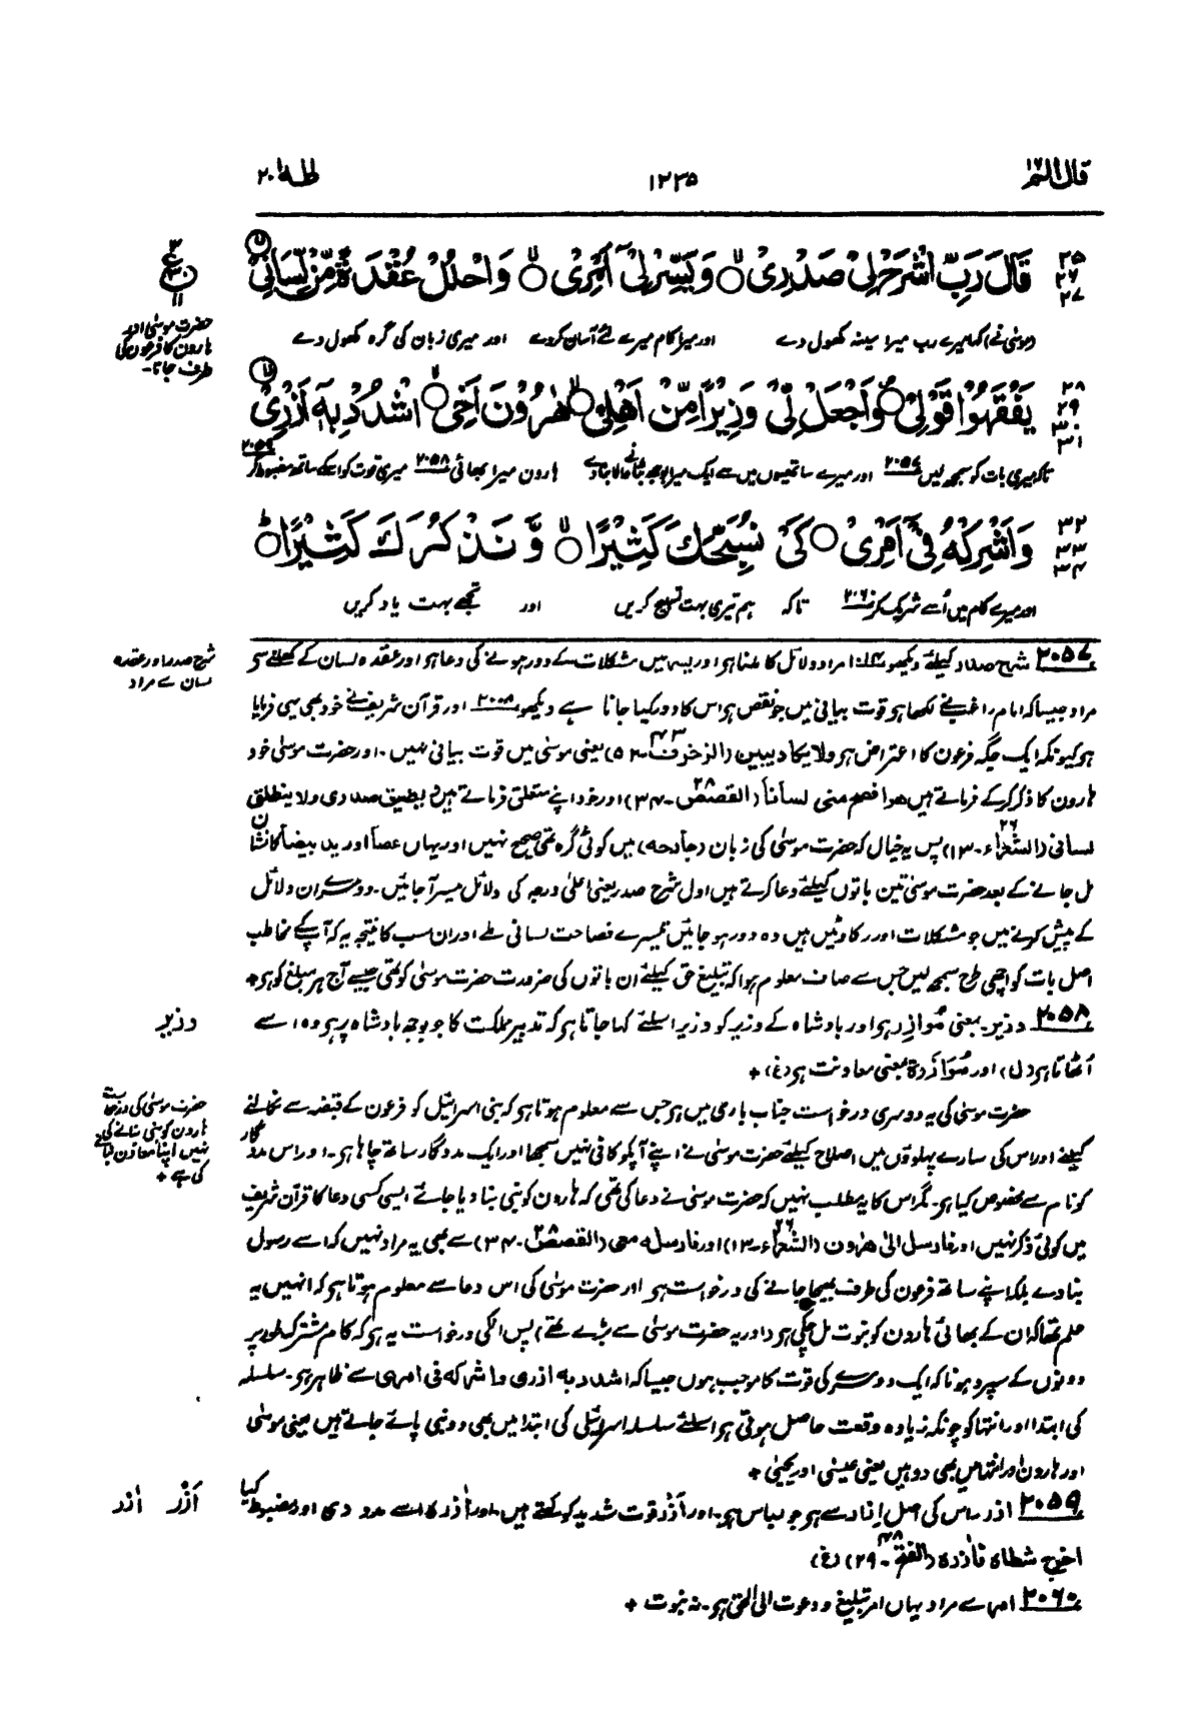 قال الم ١٦
١٢٣۵
طٰهٰ ٢٠
٢۵
٢٦
٢٧
قَالَ رَبِّ اشْرَحْ لِیْ صَدْرِیْ ۙ وَ یَسِّرْ لِیْۤ اَمْرِیْ ۙ وَ احْلُلْ عُقْدَةً مِّنْ لِّسَانِیْ ۙ
(موسیٰ نے) کہا میرے رب میرا سینہ کھول دے اور میرا کام میرے لئے آسان کردے اور میری زبان کی گرہ کھول دے
حضرت موسیٰ اور
ہارون کا فرعون کی
طرف جانا۔
٢٨
٢٩
٣٠
٣١
یَفْقَهُوْا قَوْلِیْ ۪ وَ اجْعَلْ لِّیْ وَزِیْرًا مِّنْ اَهْلِیْ ۙ هٰرُوْنَ اَخِی ۙ اشْدُدْ بِهٖۤ اَزْرِیْ ۙ
تاکہ میری بات کو سمجھ لیں ٢٠۵٧ اور میرے ساتھیوں میں سے ایک میرا بوجھ بٹانے والا بنا دے ہارون میرا بھائی ٢٠۵٨ میری قوت کو اسکے ساتھ مضبوط کر ٢٠۵٩
٣٢
٣٣
٣٤
وَ اَشْرِكْهُ فِیْۤ اَمْرِیْ ۙ كَیْ نُسَبِّحَكَ كَثِیْرًا ۙ وَّ نَذْكُرَكَ كَثِیْرًا ؕ
اور میرے کام میں اُسے شریک کر ٢٠٦٠ تاکہ ہم تیری بہت تسبیح کریں اور تجھے بہت یاد کریں
شرح صدر اور عقدہ
لسان سے مراد
٢٠۵٧ شرح صدر کیلئے دیکھو مراد دلائل کا ملنا ہو اور یسر میں مشکلات کے دور ہونے کی دعا ہو اور عقدہ لسان کے کھلنے سے
مراد جیسا کہ امام راغب نے لکھا ہو قوت بیانی میں جو نقص ہو اس کا دور کیا جانا ہے دیکھو اور قرآن شریف نے خود بھی یہی فرمایا
ہو کیونکہ ایک جگہ فرعون کا اعتراض ہو ولا یکاد یبین (الزخرف ٤٣۔۵٢) یعنی موسیٰ میں قوت بیانی نہیں۔ اور حضرت موسیٰ خود
ہارون کا ذکر کرکے فرماتے ہیں ھو افصح منی لساناً (القصص ٢٨۔٣٤) اور خود اپنے متعلق فرماتے ہیں ویضیق صدری ولا ینطلق
لسانی (الشعراء ٢٦۔١٣) پس یہ خیال کہ حضرت موسیٰ کی زبان (جارحہ) میں کوئی گرہ تھی صحیح نہیں اور یہاں عصا اور ید بیضا کا نشان
مل جانے کے بعد حضرت موسیٰ تین باتوں کیلئے دعا کرتے ہیں اول شرح صدر یعنی اعلیٰ درجہ کی دلائل میسر آجائیں۔ دوسرے ان دلائل
کے پیش کرنے میں جو مشکلات اور رکاوٹیں ہیں وہ دور ہو جائیں تیسرے فصاحت لسانی ملے اور ان سب کا نتیجہ یہ کہ آپکے مخاطب
اصل بات کو اچھی طرح سمجھ لیں جس سے صاف معلوم ہوا کہ تبلیغ حق کیلئے ان باتوں کی ضرورت حضرت موسیٰ کو تھی جیسے آج ہر مبلغ کو ہو+
وزیر
٢٠۵٨ وزیر۔ بمعنی مُوازِر ہو اور بادشاہ کے وزیر کو وزیر اسلئے کہا جاتا ہو کہ تدبیر مملکت کا جو بوجھ بادشاہ پر ہو وہ اسے
اُٹھاتا ہو (ل) اور مُوَازَرَة بمعنی معاونت ہو (غ) +
حضرت موسیٰ کی درخواست
ہارون کو نبی بنانے کی
نہیں اپنا معاون بنانے
کی ہے +
حضرت موسیٰ کی یہ دوسری درخواست جناب باری میں ہو جس سے معلوم ہوتا ہو کہ بنی اسرائیل کو فرعون کے قبضہ سے نکالنے
کیلئے اور اس کی سارے پہلوؤں میں اصلاح کیلئے حضرت موسیٰ نے اپنے آپکو کافی نہیں سمجھا اور ایک مددگار ساتھ چاہا ہو۔ اور اس مددگار
کو نام سے مخصوص کیا ہو۔ مگر اس کا یہ مطلب نہیں کہ حضرت موسیٰ نے دعا کی تھی کہ ہارون کو نبی بنا دیا جائے ایسی کسی دعا کا قرآن شریف
میں کوئی ذکر نہیں اور فارسل الیٰ ھٰرون (الشعراء ٢٦۔١٣) اور فارسله معی (القصص ٢٨۔٣٤) سے بھی یہ مراد نہیں کہ اسے رسول
بنا دے بلکہ اپنے ساتھ فرعون کی طرف بھیجا جانے کی درخواست ہو اور حضرت موسیٰ کی اس دعا سے معلوم ہوتا ہو کہ انہیں یہ
علم تھا کہ ان کے بھائی ہارون کو نبوت مل چکی ہو (اور یہ حضرت موسیٰ سے بڑے تھے) پس انکی درخواست یہ ہو کہ کام مشترکہ طور پر
دونوں کے سپرد ہو تاکہ ایک دوسرے کی قوت کا موجب ہوں جیسا کہ اشدد به ازری واشرکه فی امری سے ظاہر ہو۔ سلسلہ
کی ابتدا اور انتہا کو چونکہ زیادہ وقعت حاصل ہوتی ہو اسلئے سلسلہ اسرائیلی کی ابتدا میں بھی دو نبی پائے جاتے ہیں یعنی موسیٰ
اور ہارون اور انتہا میں بھی دو ہیں یعنی عیسیٰ اور یحییٰ +
اَزْر اٰزر
٢٠۵٩ ازر۔ اس کی اصل اِزار سے ہو جو لباس ہو۔ اور اَزْر قوت شدید کو کہتے ہیں۔ اور اٰزرہ اسے مدد دی اور مضبوط کیا
اخرج شطاه فاٰزره (الفتح ٤٨۔٢٩) (غ)
٢٠٦٠ امر سے مراد یہاں امر تبلیغ و دعوت الی الحق ہو۔ نہ نبوت +